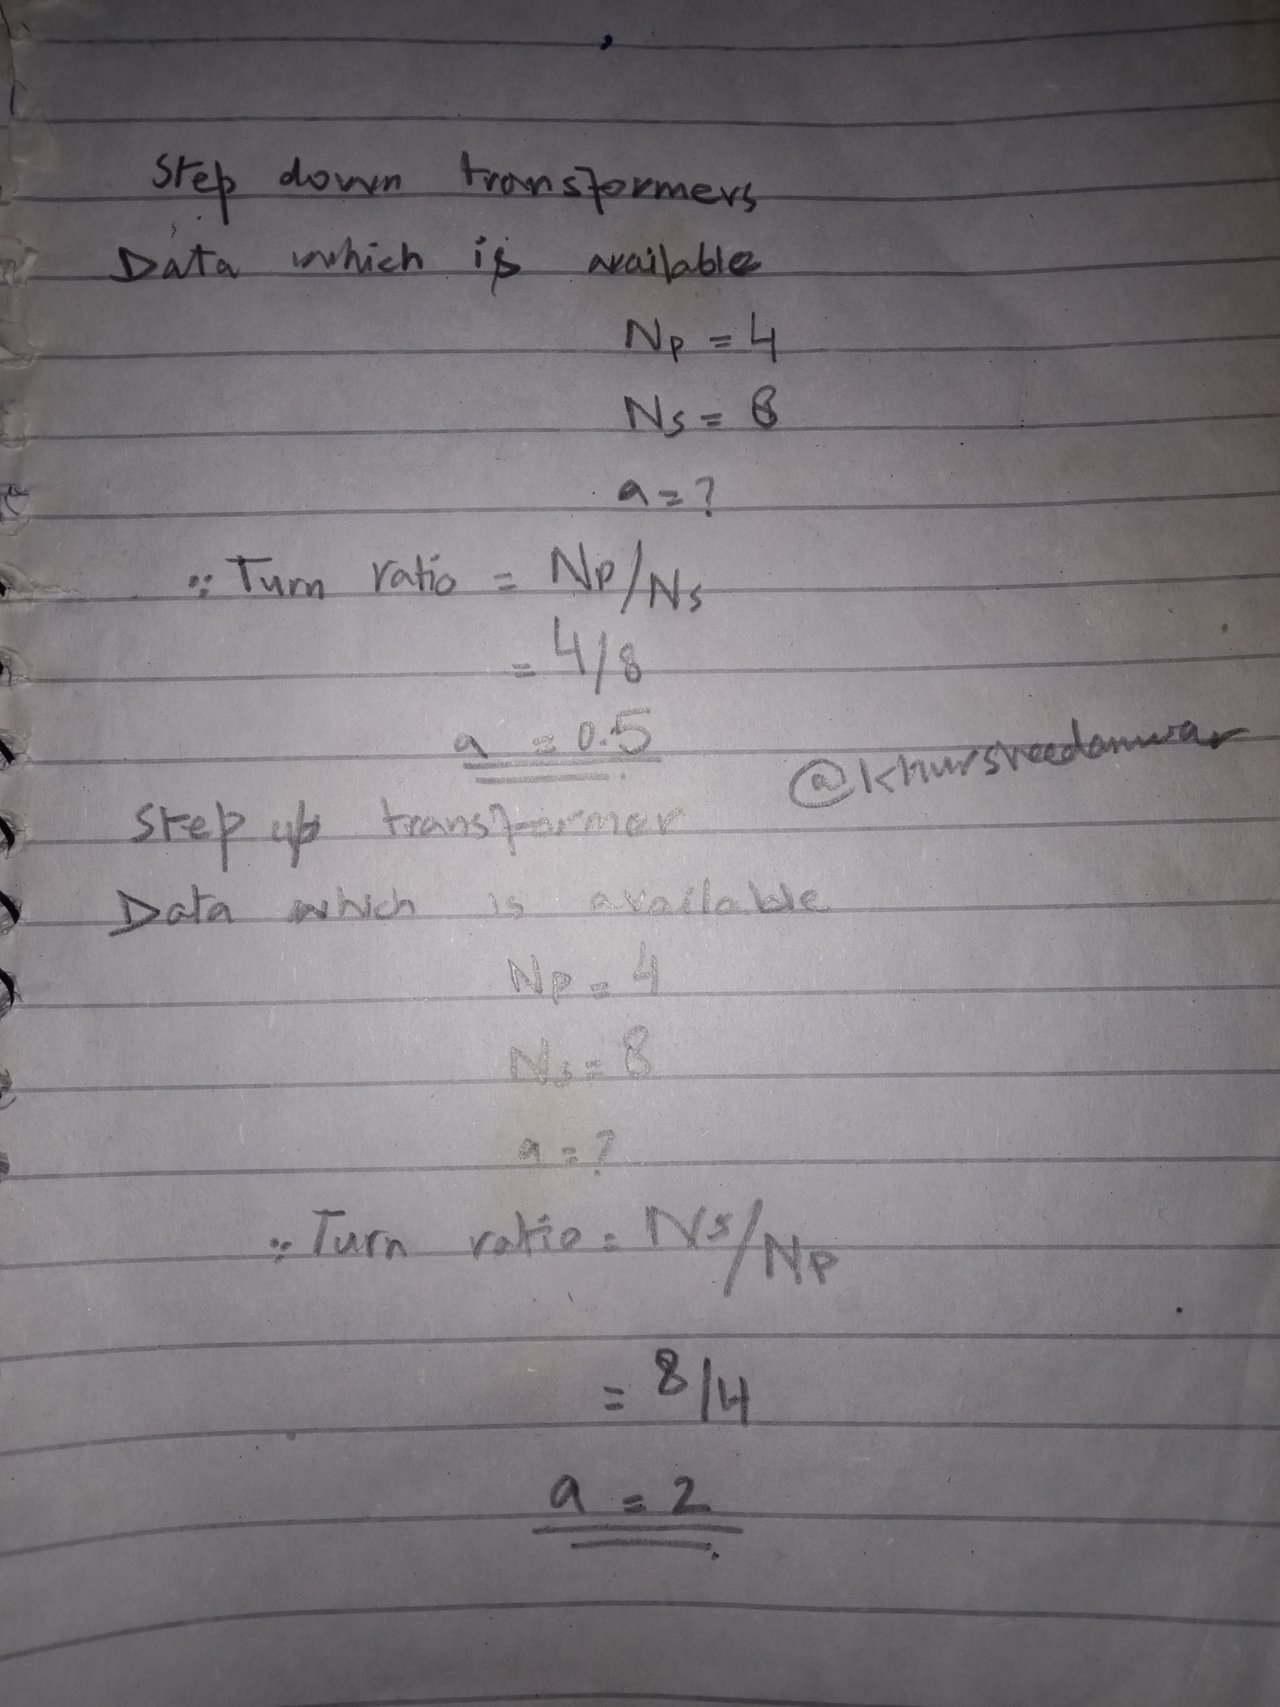 Step down transformers
Data which is available
Np = 4
Ns = 8
a = ?
∵ Turn ratio = Np/Ns
= 4/8
a = 0.5
@khursheedanwar
Step up transformer
Data which is available
Np = 4
Ns = 8
a = ?
∵ Turn ratio = Ns/Np
= 8/4
a = 2